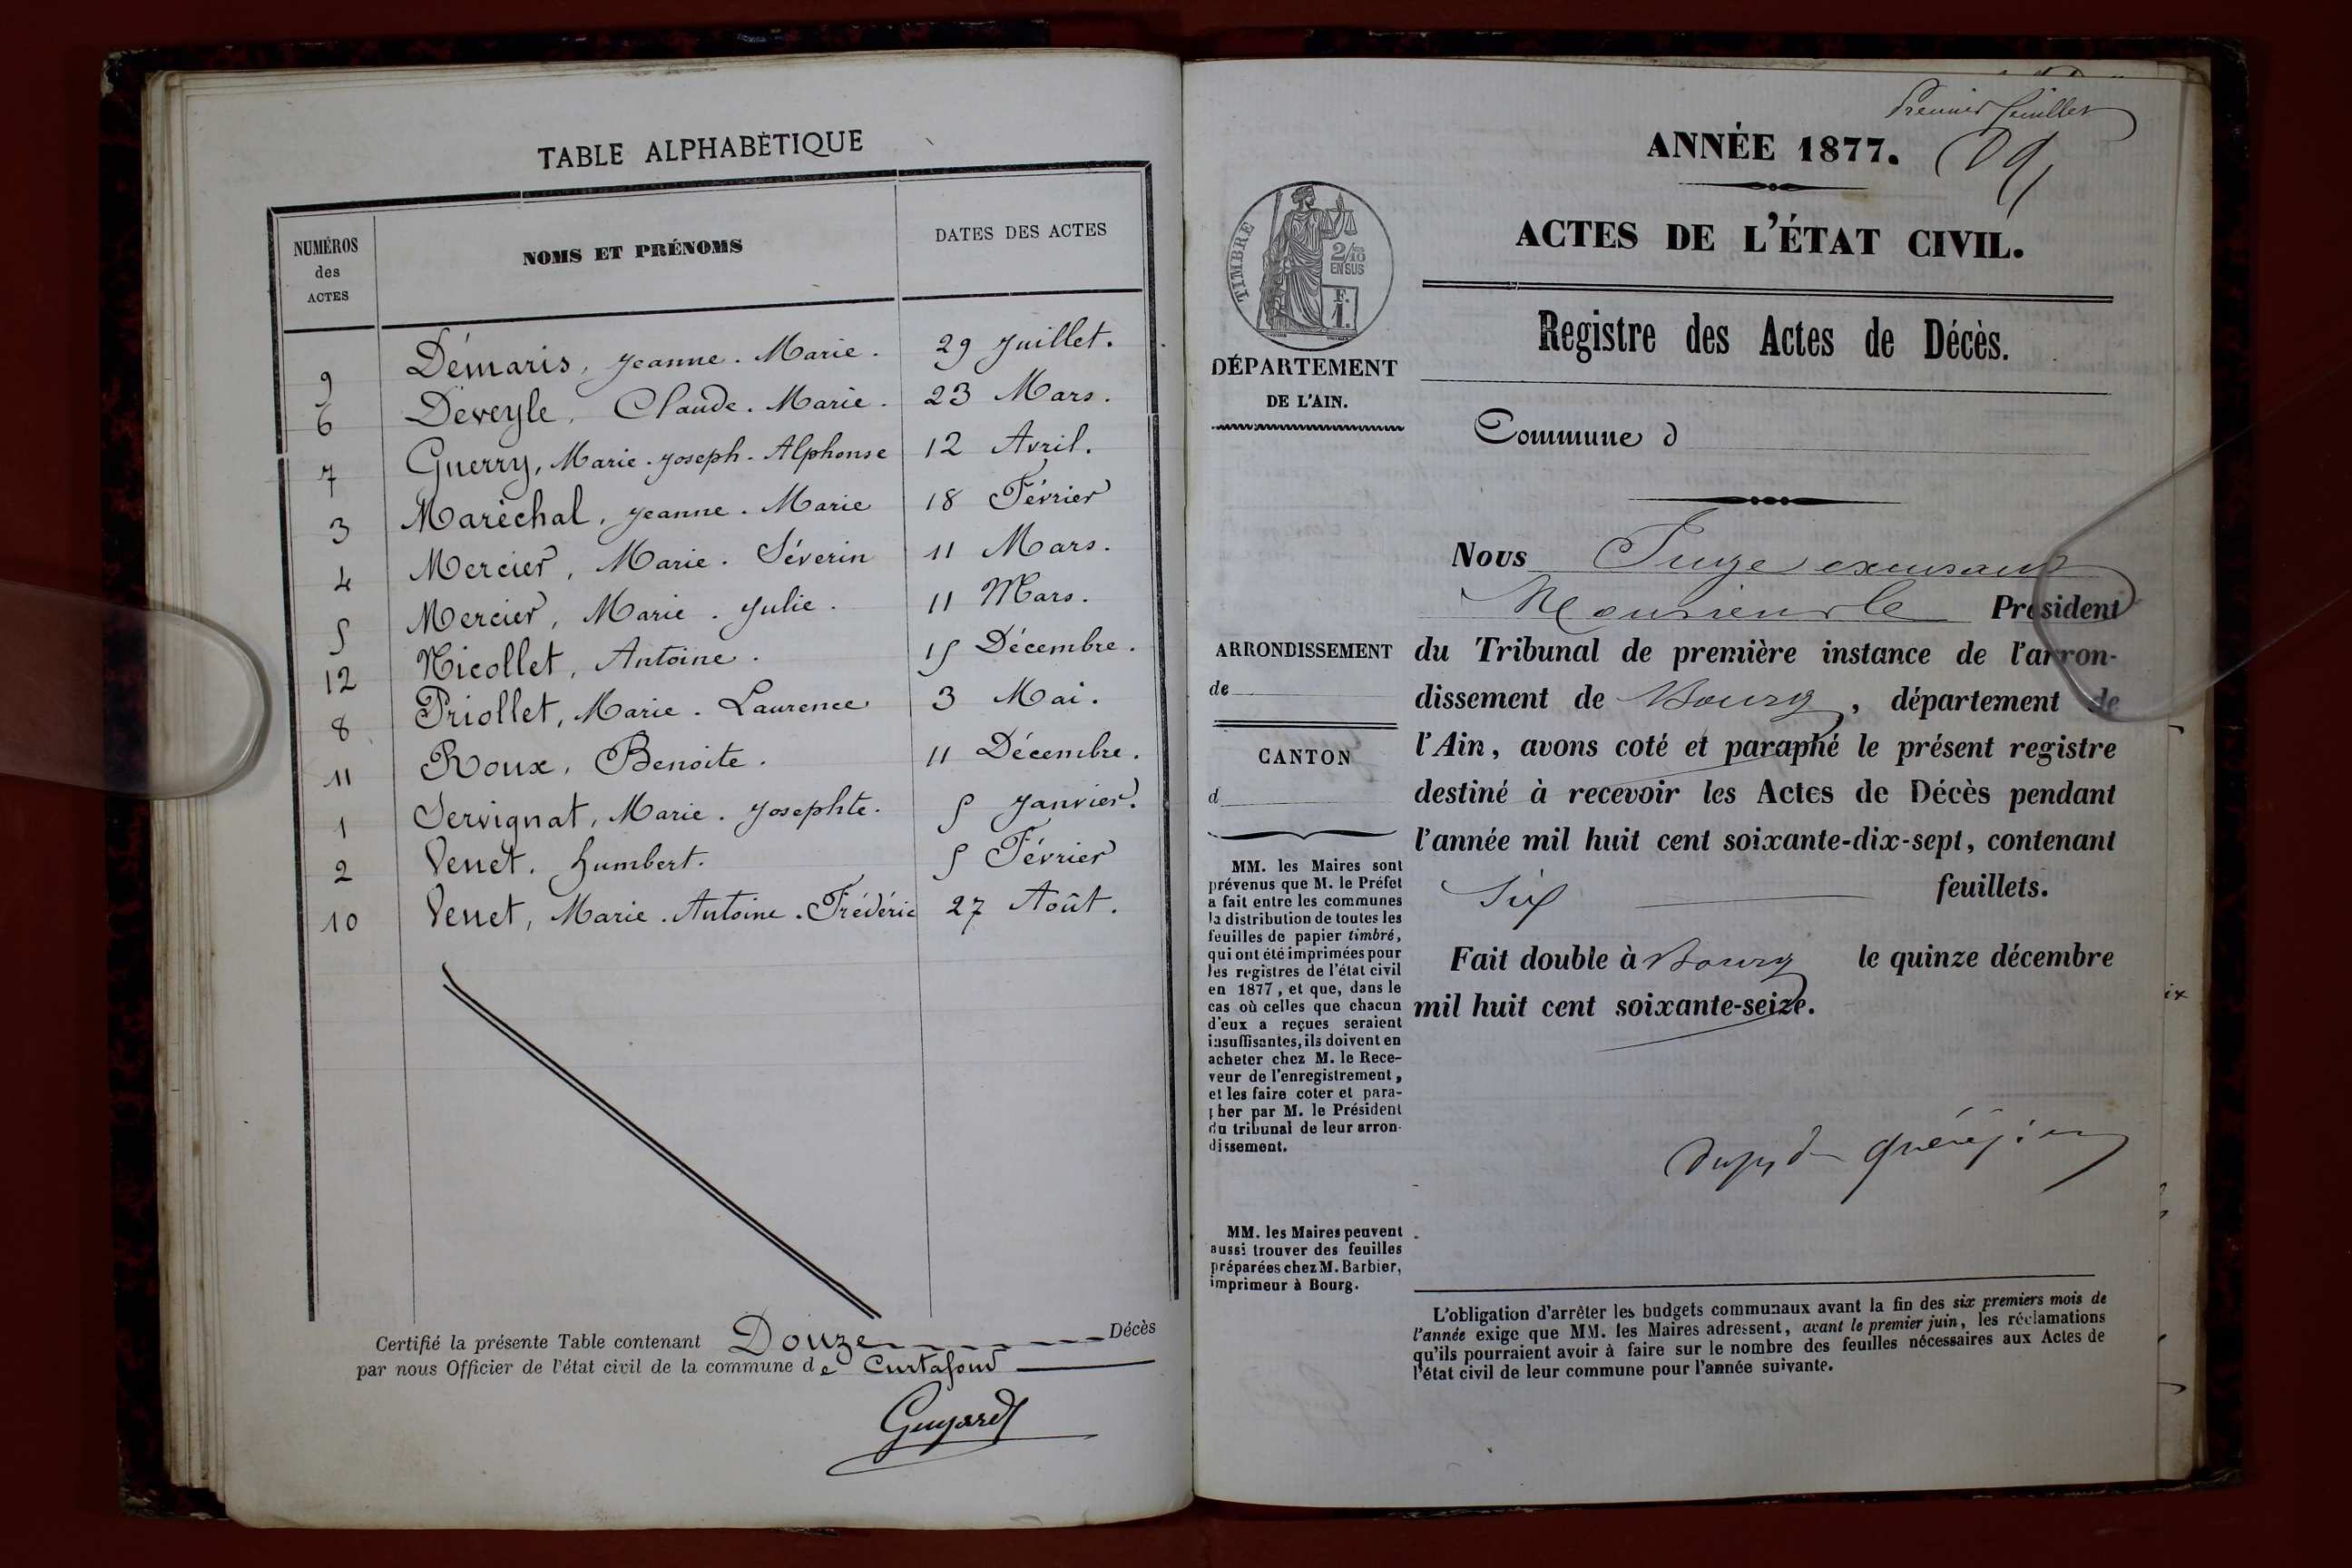 TABLE ALPHABÉTIQUE
NUMÉROS
des
ACTES
NOMS ET PRÉNOMS
DATES DES ACTES
9 Démaris, Jeanne. Marie. 29 Juillet.
6 Deveyle, Claude. Marie. 23 Mars.
7 Guerry, Marie. Joseph. Alphonse 12 Avril.
3 Maréchal, Jeanne. Marie 18 Février
4 Mercier, Marie. Séverin 11 Mars.
5 Mercier, Marie. Julie. 11 Mars.
12 Nicollet, Antoine. 15 Décembre.
8 Priollet, Marie. Laurence 3 Mai.
11 Roux, Benoite. 11 Décembre.
1 Servignat, Marie. Josephte. 5 Janvier.
2 Venet. Humbert. 5 Février
10 Venet, Marie. Antoine. Frédéric 27 Août.
Certifié la présente Table contenant Douze Décès
par nous Officier de l'état civil de la commune de Curtafond
Guyard
Premier feuillet
ANNÉE 1877.
ACTES DE L'ÉTAT CIVIL.
Registre des Actes de Décès.
Commune d
TIMBRE
2/10
EN SUS
F.
1.
DÉPARTEMENT
DE L'AIN.
ARRONDISSEMENT
de
CANTON
d
MM. les Maires sont
prévenus que M. le Préfet
a fait entre les communes
la distribution de toutes les
feuilles de papier timbré,
qui ont été imprimées pour
les registres de l'état civil
en 1877, et que, dans le
cas où celles que chacun
d'eux a reçues seraient
insuffisantes, ils doivent en
acheter chez M. le Rece-
veur de l'enregistrement,
et les faire coter et para-
pher par M. le Président
du tribunal de leur arron-
dissement.
MM. les Maires peuvent
aussi trouver des feuilles
préparées chez M. Barbier,
imprimeur à Bourg.
Nous Juge excusant
Monsieur le Président
du Tribunal de première instance de l'arron-
dissement de Bourg, département de
l'Ain, avons coté et paraphé le présent registre
destiné à recevoir les Actes de Décès pendant
l'année mil huit cent soixante-dix-sept, contenant
Six feuillets.
Fait double à Bourg le quinze décembre
mil huit cent soixante-seize.
L'obligation d'arrêter les budgets communaux avant la fin des six premiers mois de
l'année exige que MM. les Maires adressent, avant le premier juin, les réclamations
qu'ils pourraient avoir à faire sur le nombre des feuilles nécessaires aux Actes de
l'état civil de leur commune pour l'année suivante.